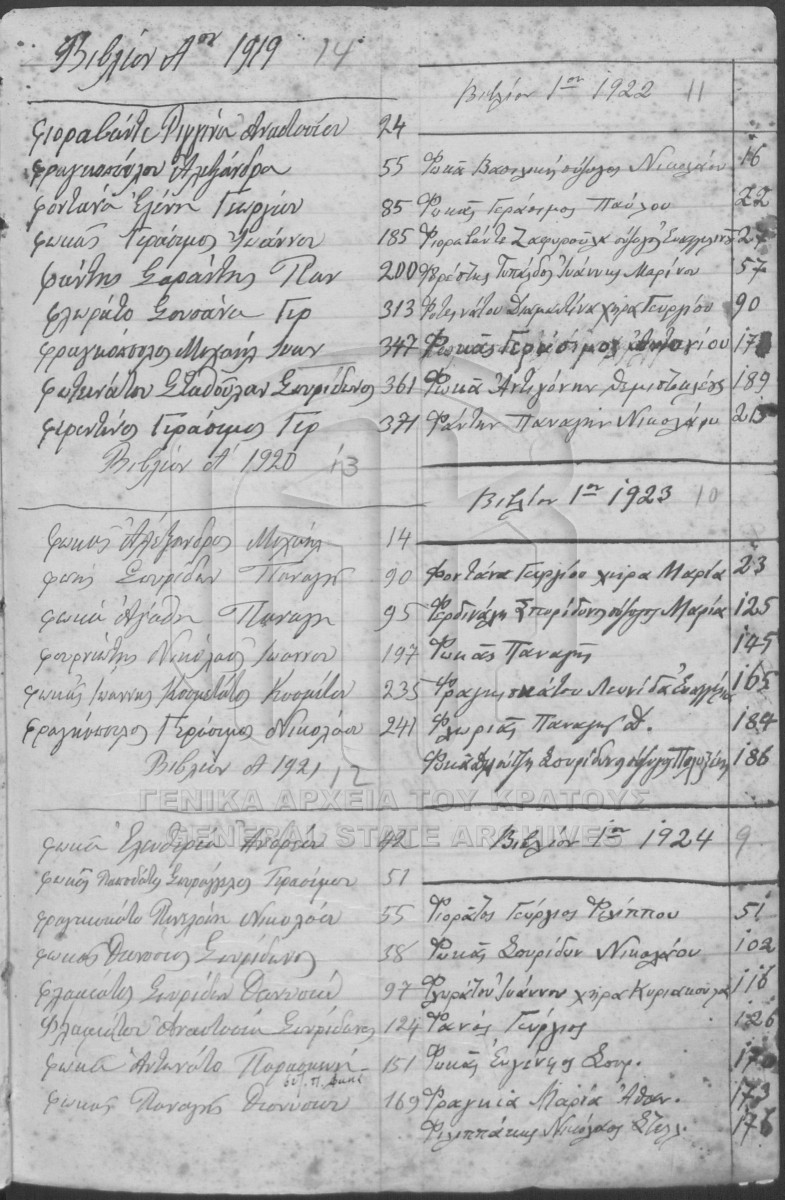 Βιβλίον Αον 1919 14
Φιοραβάντε Ρεγγίνα Αναστασίου 24
Φραγκοπούλου Αλεξάνδρα 55
Φοντάνα Ελένη Γεωργίου 85
Φωκάς Γεράσιμος Ιωάννου 185
Φάντης Σαράντης Παν 200
Φλωράτο Σουσάνα Γερ 313
Φραγκόπουλος Μιχαήλ Ιωαν 347
Φωτεινάτου Σταθούλαν Σπυρίδωνος 361
Φερεντίνος Γεράσιμος Γερ 371
Βιβλίον Α 1920 13
Φωκάς Αλέξανδρος Μιχαήλ 14
Σπυρίδων Παναγή 90
Φωκά Αγάθη Παναγή 95
Φουρνιώτης Νικόλαος Ιωάννου 197
Φωκάς Ιωάννης Κοσμετάτος Κοσμέτου 235
Φραγκόπουλος Γεράσιμος Νικολάου 241
Βιβλίον Α 1921 12
Φωκά Ελευθερία Ανδρέου 42
Φωκάς Γερασίμου 51
Φραγκισκάτο Πηνελόπη Νικολάου 55
Φωκάς Διονύσιος Σπυρίδωνος 38
Φλαμιάτος Σπυρίδων Διονυσίου 97
Φλαμιάτου Αναστασία Σπυρίδωνος 124
Φωκά Αντωνάτο Παρασκευή 151
Φωκάς Παναγής Διονυσίου 169
Βιβλίον 1ον 1922 11
Φωκά Βασιλική σύζυγος Νικολάου 16
Φωκάς Γεράσιμος Παύλου 22
Φιοραβάντε Ζαφυρούλα σύζυγος Ευαγγελινού 27
Τυπάλδος Ιωάννης Μαρίνου 57
Φωτεινάτου Διαμαντίνα χήρα Γεωργίου 90
Φωκάς Γεράσιμος Αντωνίου
Φωκά Αντιγόνην Θεμιστοκλέους 189
Φάντην Παναγήν Νικολάου 213
Βιβλίον 1ον 1923 10
Φοντάνα Γεωργίου χήρα Μαρία 23
Φερδινάνδη Σπυρίδωνος σύζυγος Μαρία 125
Φωκάς Παναγής 145
Φραγκισκάτου Λεωνίδα 165
Φλωριάς Παναγής Δ. 184
Φωκά Σπυρίδωνος σύζυγος 186
Βιβλίον 1ον 1924 9
Φιοράτος Γεώργιος Φιλίππου 51
Φωκάς Σπυρίδων Νικολάου 102
Φλωράτου Ιωάννου χήρα Κυριακούλα 116
Φανός Γεώργιος 126
Φωκάς Ευγένιος Σπυρ.
Φραγκιά Μαρία Αθαν. 173
Φιλιππάκης Νικόλαος Στυλ. 176
ΓΕΝΙΚΑ ΑΡΧΕΙΑ ΤΟΥ ΚΡΑΤΟΥΣ
GENERAL STATE ARCHIVES